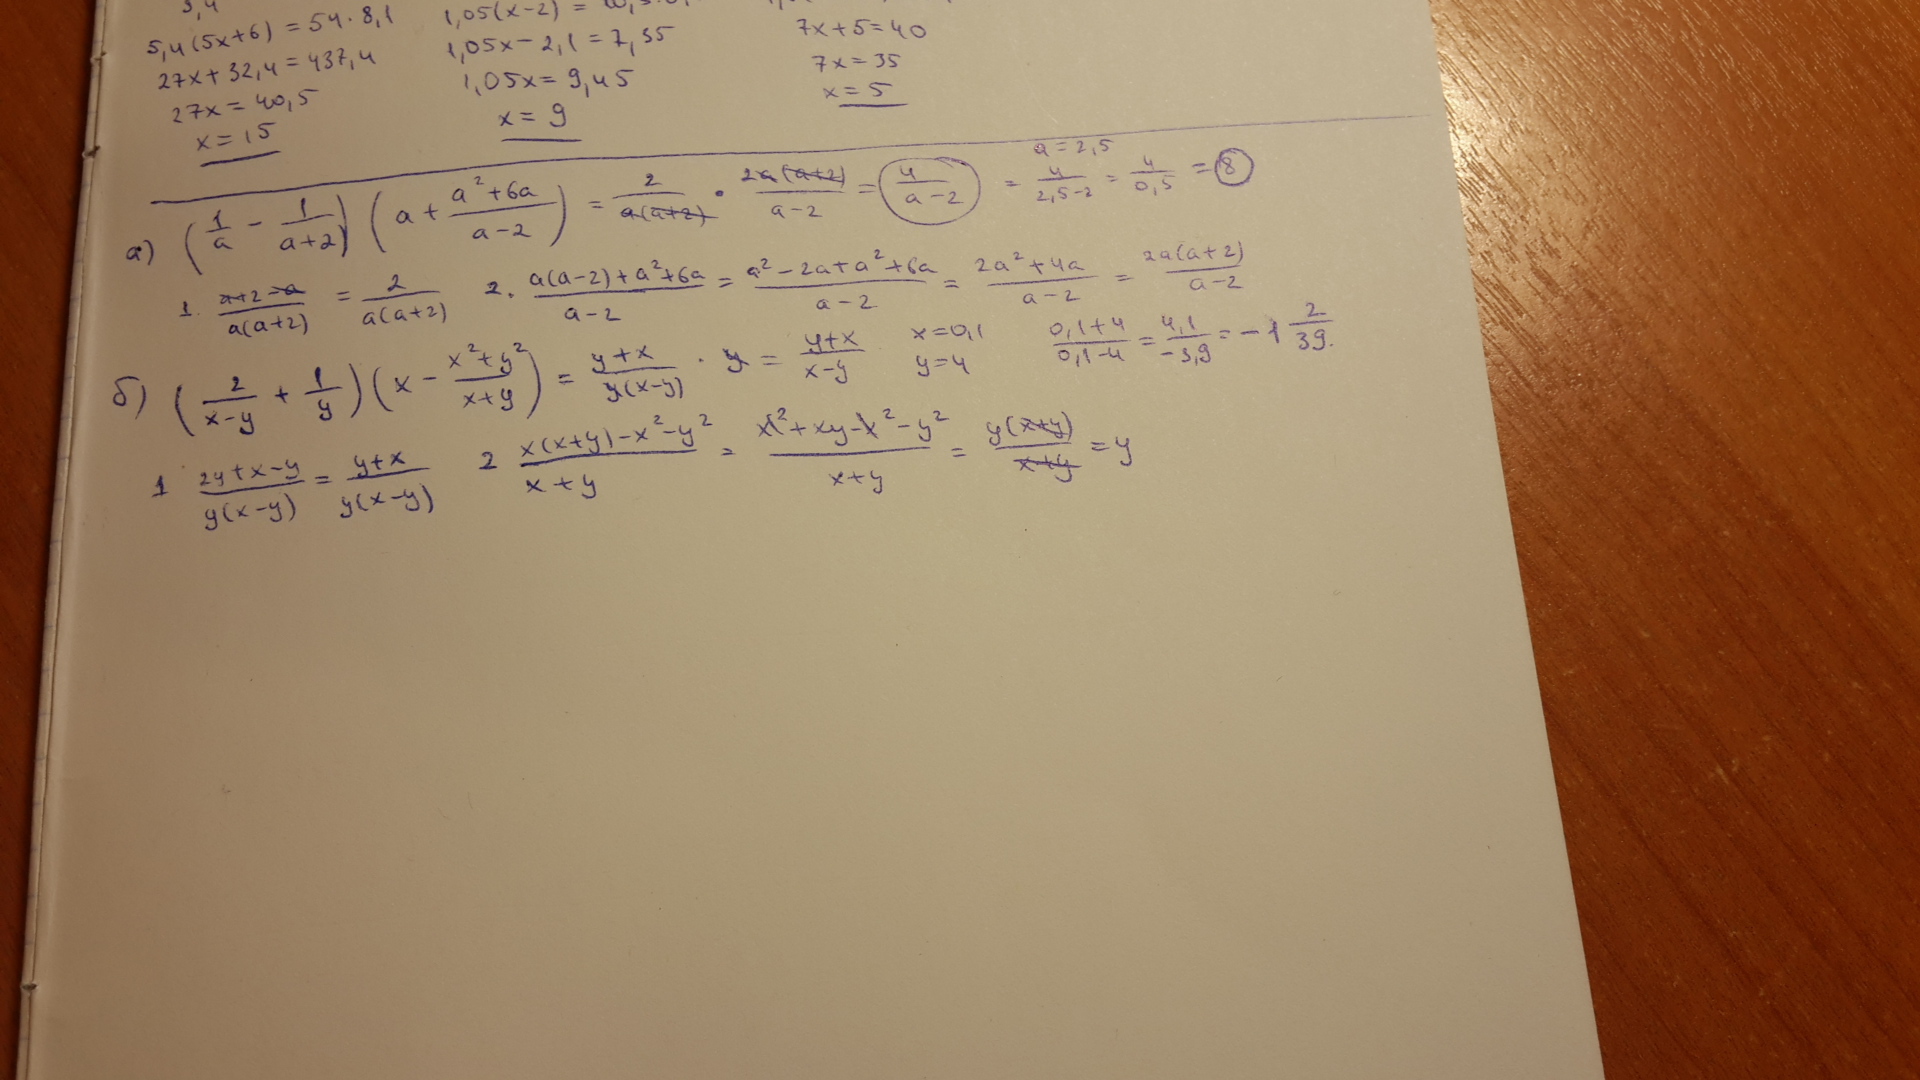 5,4(5x+6) = 54·8,1
27x+32,4=437,4
27x=40,5
x=15
1,05(x-2) =
1,05x-2,1=7,35
1,05x=9,45
x=9
7x+5=40
7x=35
x=5
а) (1/a - 1/(a+2)) (a + (a²+6a)/(a-2)) = 2/(a(a+2)) · 2a(a+2)/(a-2) = 4/(a-2) = 4/(2,5-2) = 4/0,5 = 8
a=2,5
1. (a+2-a)/(a(a+2)) = 2/(a(a+2)) 2. (a(a-2)+a²+6a)/(a-2) = (a²-2a+a²+6a)/(a-2) = (2a²+4a)/(a-2) = 2a(a+2)/(a-2)
б) (2/(x-y) + 1/y) (x - (x²+y²)/(x+y)) = (y+x)/(y(x-y)) · y = (y+x)/(x-y) x=0,1 y=4 (0,1+4)/(0,1-4) = 4,1/-3,9 = -1 2/39.
1 (2y+x-y)/(y(x-y)) = (y+x)/(y(x-y)) 2 (x(x+y)-x²-y²)/(x+y) = (x²+xy-x²-y²)/(x+y) = y(x+y)/(x+y) = y